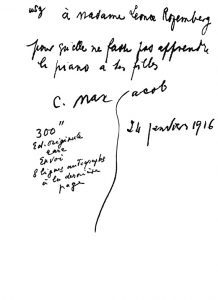 à Madame Léonce Rosemberg
pour qu'elle ne fasse pas apprendre
le piano à ses filles
C. Max Jacob
24 janvier 1916
300"
Ed. originale
rare
Envoi
8 lignes autographes
à la dernière
page